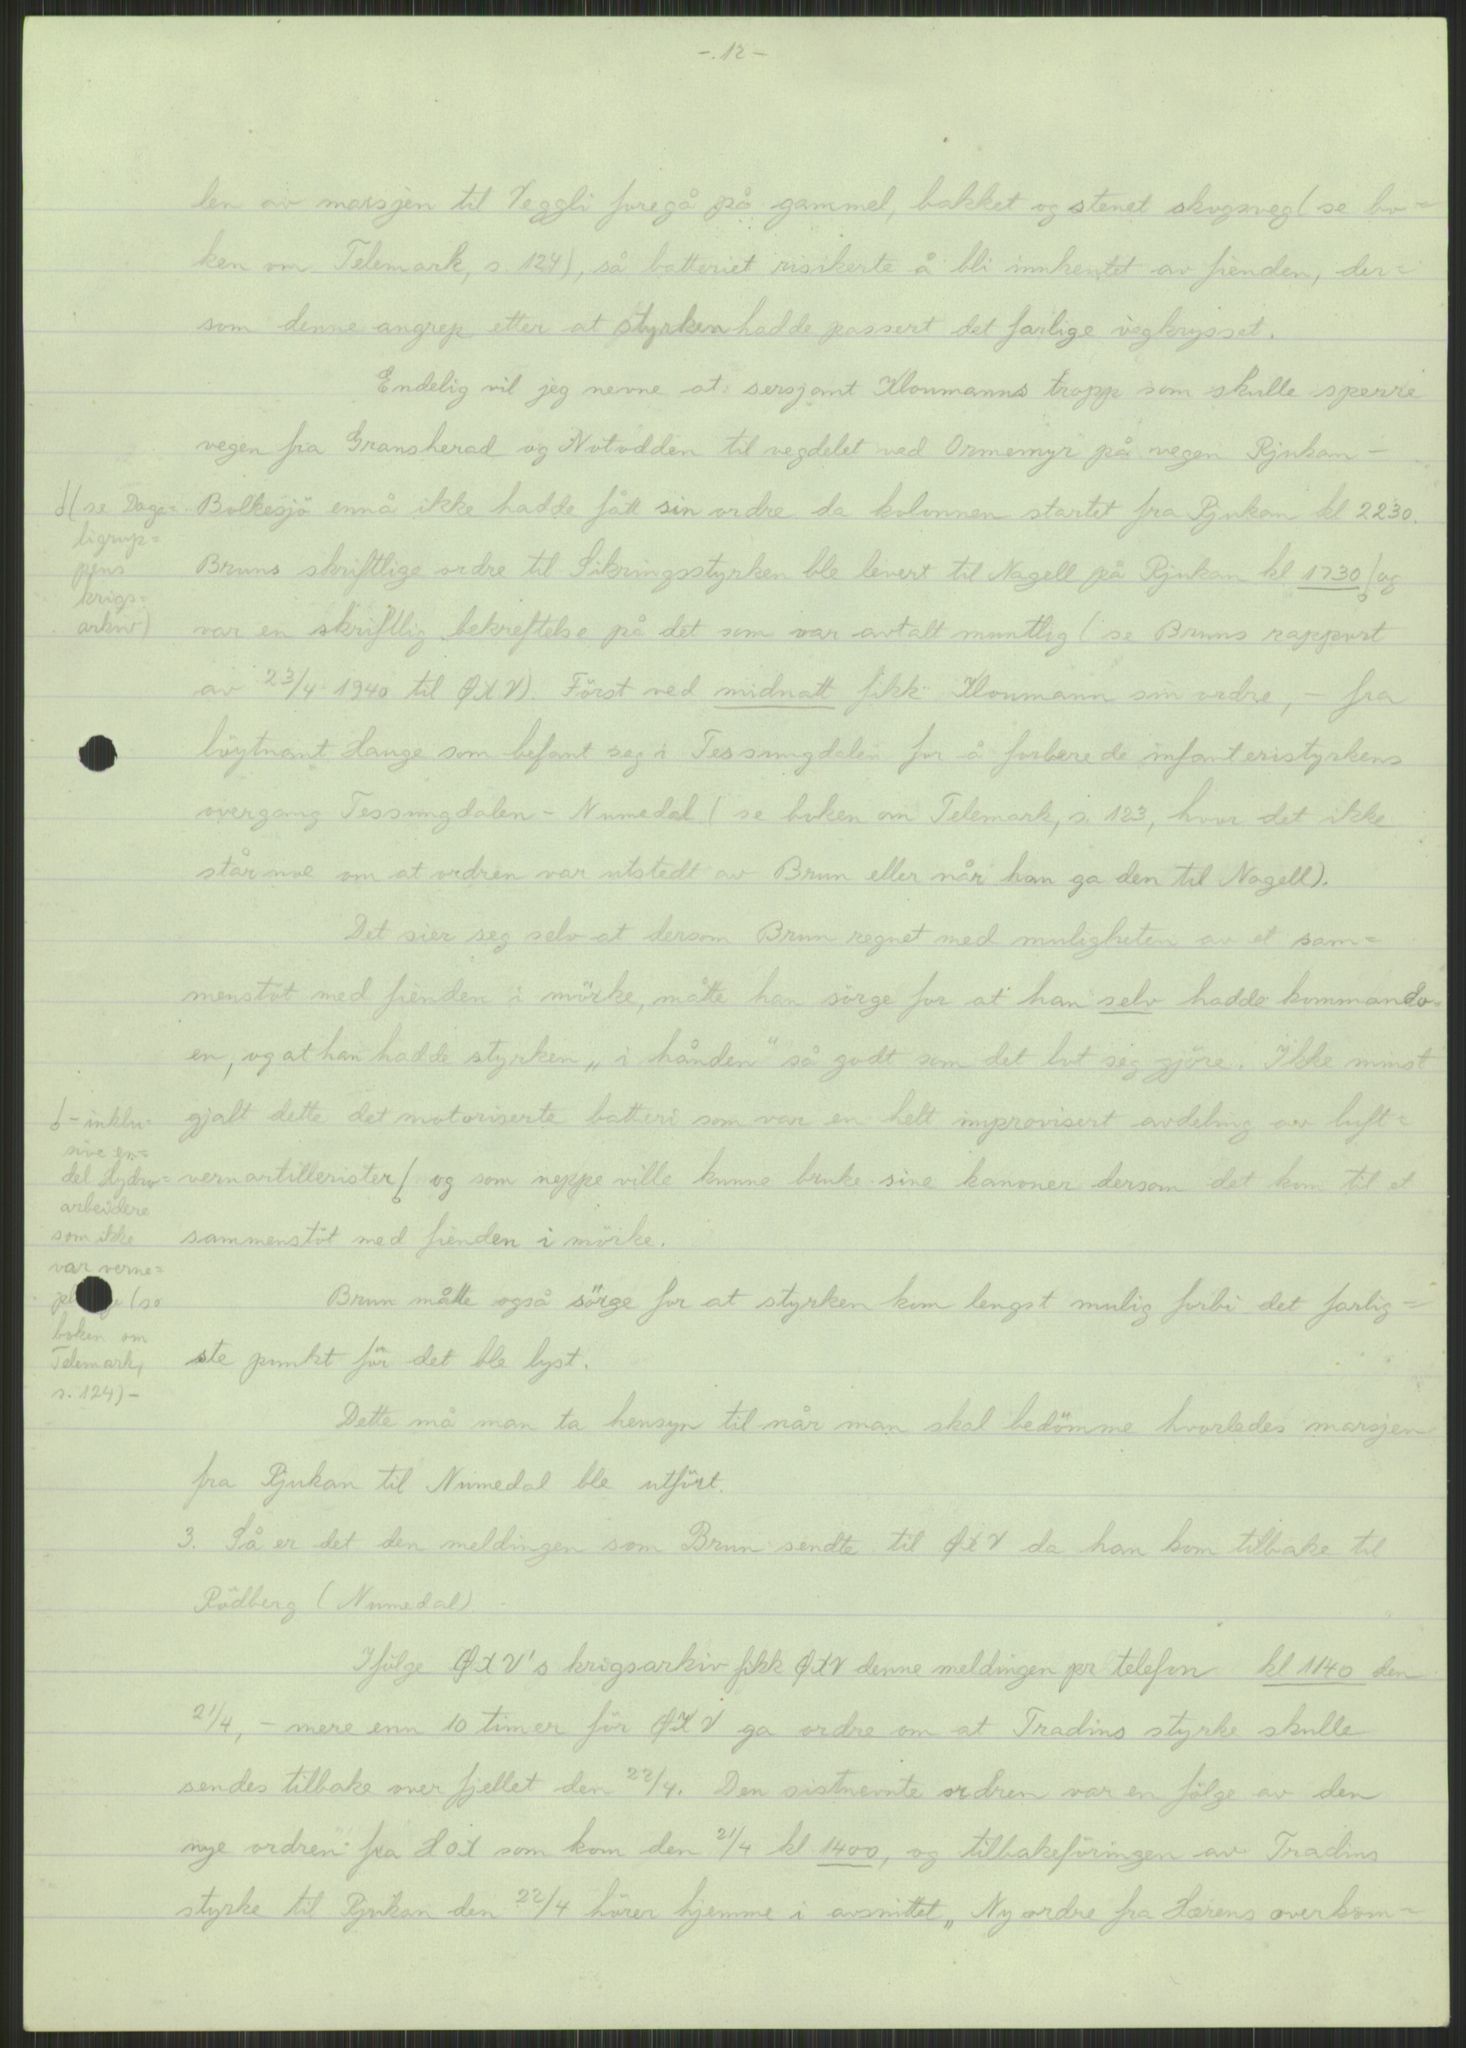 -.12-
len av marsjen til Veggli foregå på gammel, bakket og stenet skogsveg (se bo=
ken om Telemark, s. 124), så batteriet risikerte å bli innhentet av fienden, der=
som denne angrep etter at styrken hadde passert det farlige vegkrysset.
Endelig vil jeg nevne at sersjant Kloumanns tropp som skulle sperre
vegen fra Gransherad og Notodden til vegdelet ved Ormemyr på vegen Rjukan -
Bolkesjö ennå ikke hadde fått sin ordre da kolonnen startet fra Rjukan kl 2230.
Bruns skriftlige ordre til Sikringsstyrken ble levert til Nagell på Rjukan kl 1730 og
var en skriftlig bekreftelse på det som var avtalt muntlig (se Bruns rapport
av 23/4 1940 til ØXV). Först ved midnatt fikk Kloumann sin ordre, - fra
löytnant Hauge som befant seg i Tessungdalen for å forberede infanteristyrkens
overgang Tessungdalen - Numedal (se boken om Telemark, s. 123, hvor det ikke
står noe om at ordren var utstedt av Brun eller når han ga den til Nagell).
(se Dage=
ligrup=
pens
krigs=
arkiv)
Det sier seg selv at dersom Brun regnet med muligheten av et sam=
menstöt med fienden i mörke, måtte han sörge for at han selv hadde kommando=
en, og at han hadde styrken „i hånden" så godt som det lot seg gjöre. Ikke minst
gjalt dette det motoriserte batteri som var en helt improvisert avdeling av luft=
vernartillerister og som neppe ville kunne bruke sine kanoner dersom det kom til et
sammenstöt med fienden i mörke.
- inklu=
sive en=
del Hydro=
arbeidere
som ikke
var verne=
(se
boken om
Telemark,
s. 124) -
Brun måtte også sörge for at styrken kom lengst mulig forbi det farlig=
ste punkt för det ble lyst.
Dette må man ta hensyn til når man skal bedömme hvorledes marsjen
fra Rjukan til Numedal ble utfört.
3. Så er det den meldingen som Brun sendte til ØXV da han kom tilbake til
Rödberg (Numedal)
Ifölge ØXV's krigsarkiv fikk ØXV denne meldingen pr telefon kl 1140 den
21/4, - mere enn 10 timer för ØXV ga ordre om at Tradins styrke skulle
sendes tilbake over fjellet den 22/4. Den sistnevnte ordren var en fölge av den
nye ordren fra HOK som kom den 21/4 kl 1400, og tilbakeföringen av Tradins
styrke til Rjukan den 22/4 hörer hjemme i avsnittet „Ny ordre fra Hærens overkom=